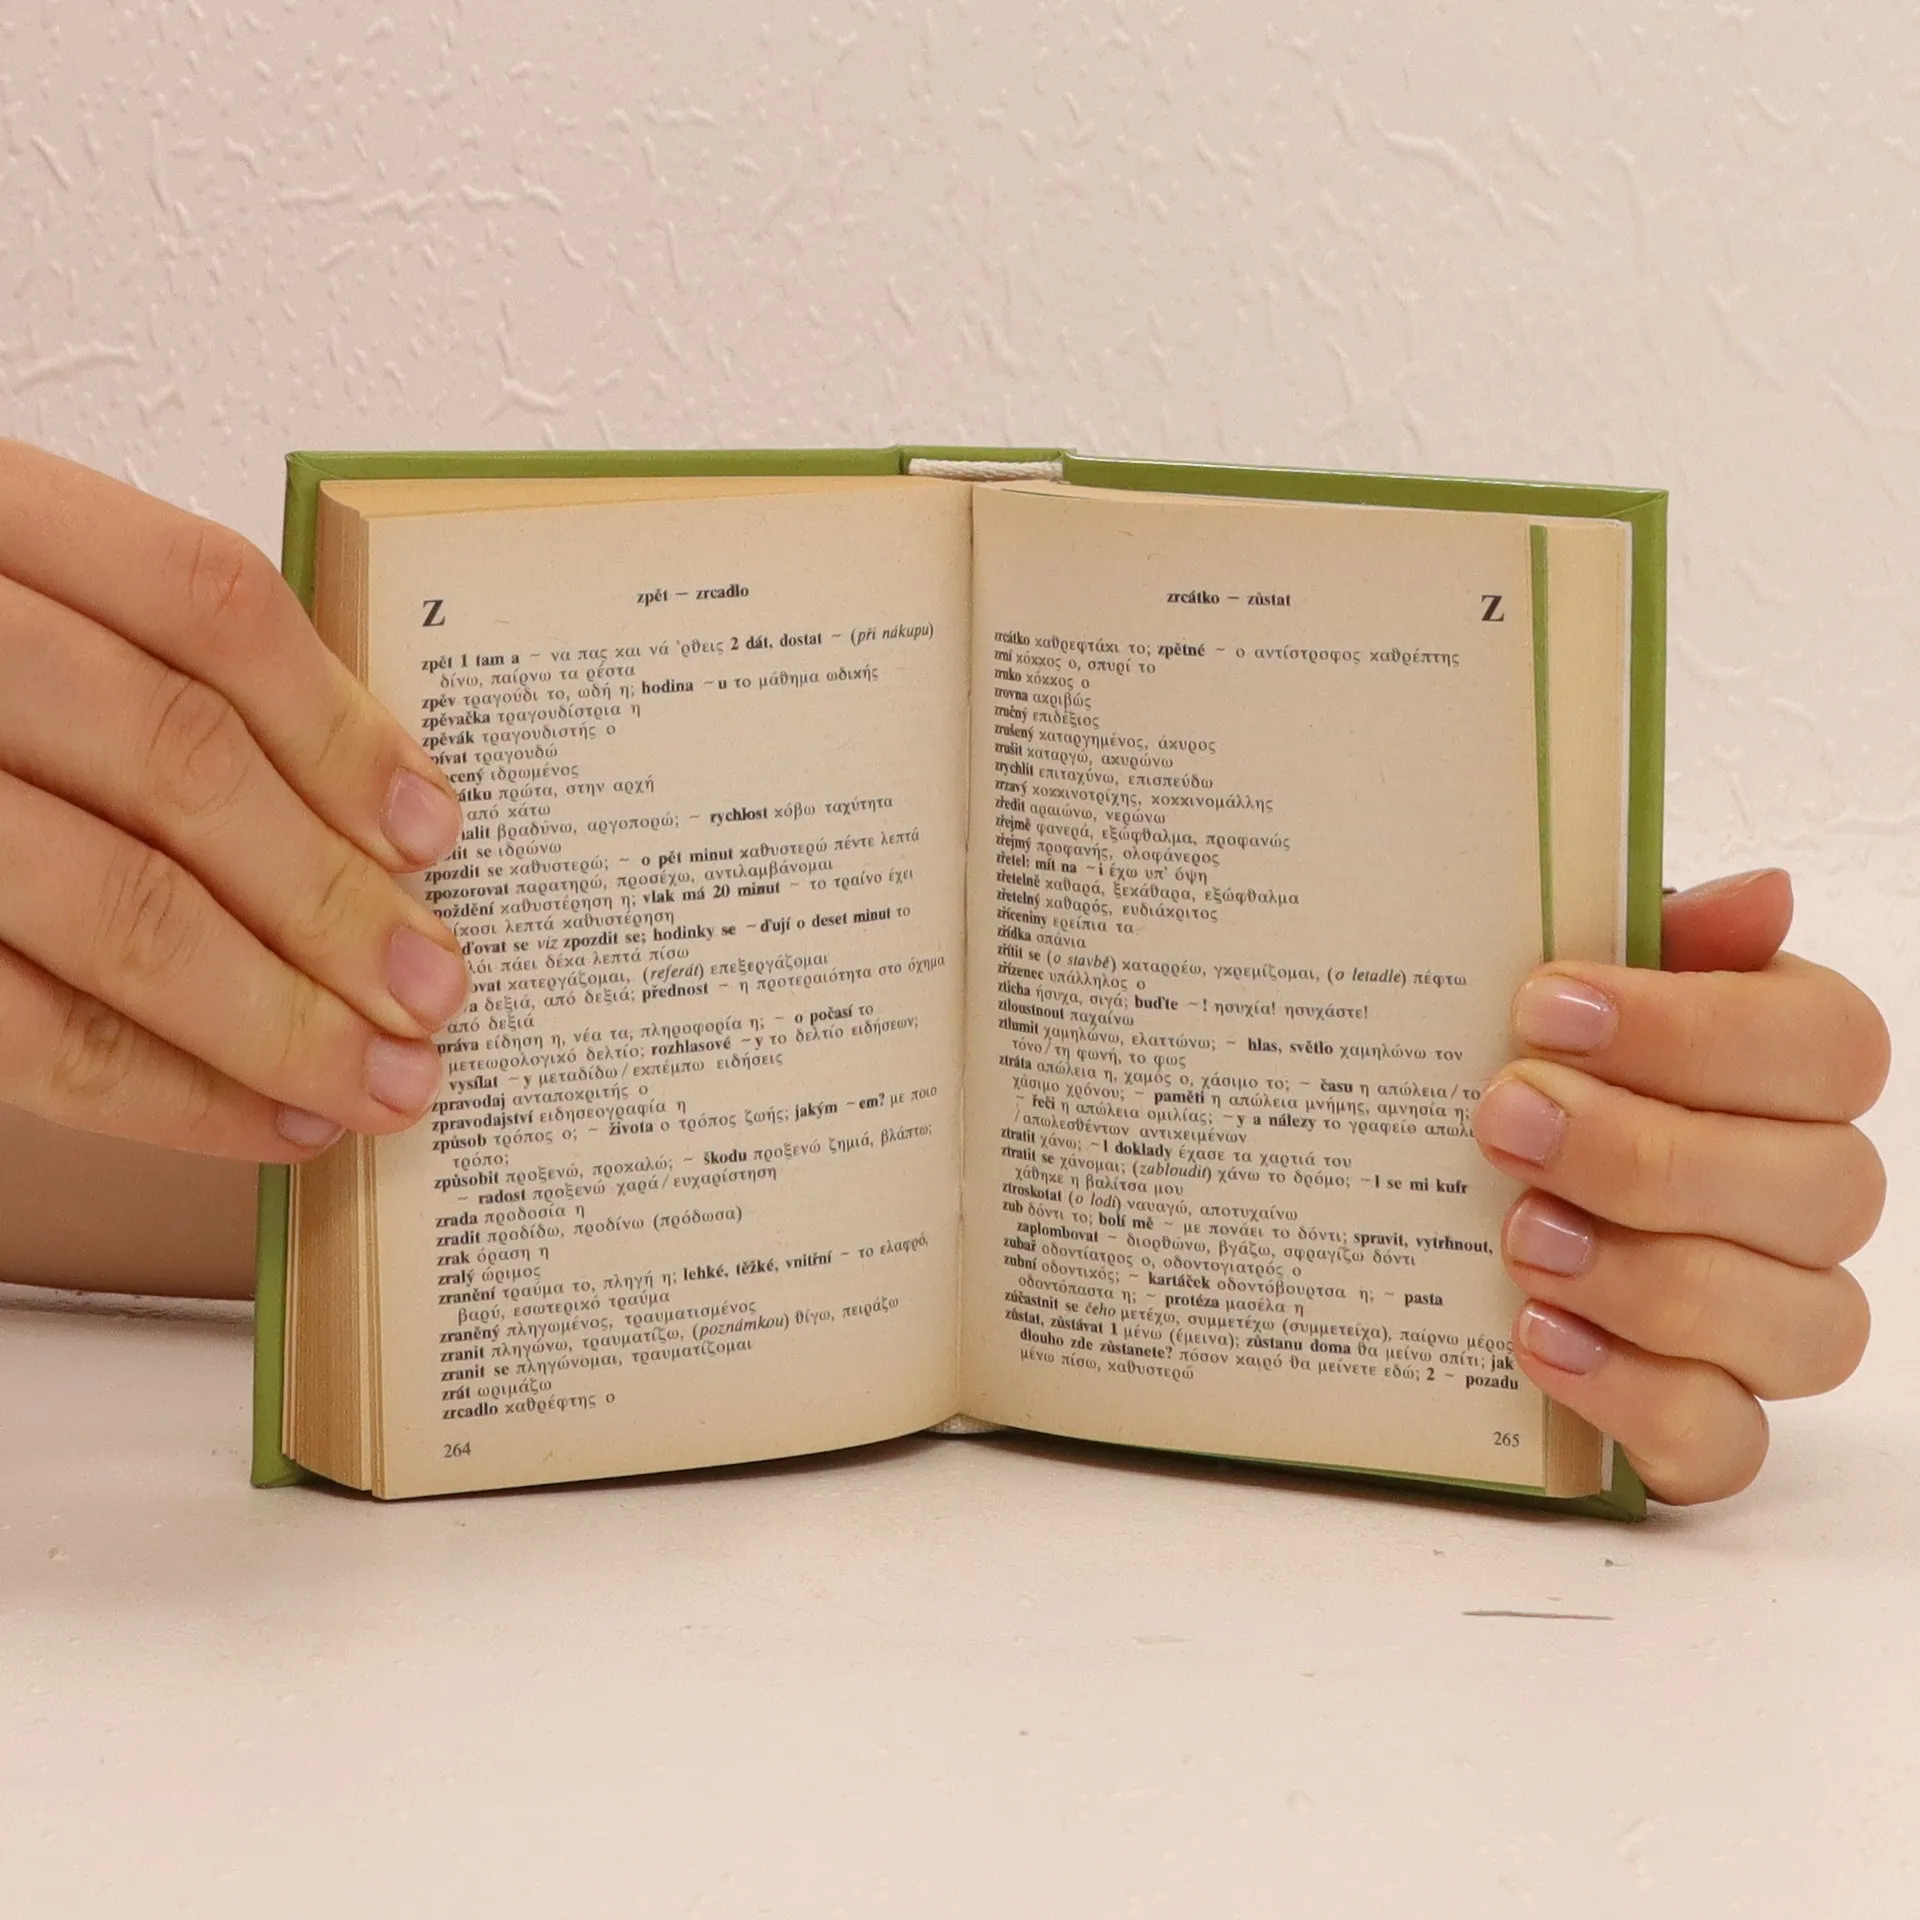 Z
zpět — zrcadlo
zpět 1 tam a ~ να πας και νά 'ρθεις 2 dát, dostat ~ (při nákupu)
δίνω, παίρνω τα ρέστα
zpěv τραγούδι το, ωδή η; hodina ~u το μάθημα ωδικής
zpěvačka τραγουδίστρια η
zpěvák τραγουδιστής ο
τραγουδώ
ιδρωμένος
πρώτα, στην αρχή
από κάτω
βραδύνω, αργοπορώ; ~ rychlost κόβω ταχύτητα
se ιδρώνω
zpozdit se καθυστερώ; ~ o pět minut καθυστερώ πέντε λεπτά
zpozorovat παρατηρώ, προσέχω, αντιλαμβάνομαι
καθυστέρηση η; vlak má 20 minut ~ το τραίνο έχει
λεπτά καθυστέρηση
se viz zpozdit se; hodinky se ~ďují o deset minut το
πάει δέκα λεπτά πίσω
κατεργάζομαι, (referát) επεξεργάζομαι
δεξιά, από δεξιά; přednost ~ η προτεραιότητα στο όχημα
από δεξιά
είδηση η, νέα τα, πληροφορία η; ~ o počasí το
μετεωρολογικό δελτίο; rozhlasové ~y το δελτίο ειδήσεων;
vysílat ~y μεταδίδω / εκπέμπω ειδήσεις
zpravodaj ανταποκριτής ο
zpravodajství ειδησεογραφία η
způsob τρόπος ο; ~ života ο τρόπος ζωής; jakým ~em? με ποιο
τρόπο;
způsobit προξενώ, προκαλώ; ~ škodu προξενώ ζημιά, βλάπτω;
~ radost προξενώ χαρά / ευχαρίστηση
zrada προδοσία η
zradit προδίδω, προδίνω (πρόδωσα)
zrak όραση η
zralý ώριμος
zranění τραύμα το, πληγή η; lehké, těžké, vnitřní ~ το ελαφρό,
βαρύ, εσωτερικό τραύμα
zraněný πληγωμένος, τραυματισμένος
zranit πληγώνω, τραυματίζω, (poznámkou) θίγω, πειράζω
zranit se πληγώνομαι, τραυματίζομαι
zrát ωριμάζω
zrcadlo καθρέφτης ο
264
zrcátko — zůstat
Z
zrcátko καθρεφτάκι το; zpětné ~ ο αντίστροφος καθρέπτης
zrní κόκκος ο, σπυρί το
zrnko κόκκος ο
zrovna ακριβώς
zručný επιδέξιος
zrušený καταργημένος, άκυρος
zrušit καταργώ, ακυρώνω
zrychlit επιταχύνω, επισπεύδω
zrzavý κοκκινοτρίχης, κοκκινομάλλης
zředit αραιώνω, νερώνω
zřejmě φανερά, εξώφθαλμα, προφανώς
zřejmý προφανής, ολοφάνερος
zřetel: mít na ~i έχω υπ' όψη
zřetelně καθαρά, ξεκάθαρα, εξώφθαλμα
zřetelný καθαρός, ευδιάκριτος
zříceniny ερείπια τα
zřídka σπάνια
zřítit se (o stavbě) καταρρέω, γκρεμίζομαι, (o letadle) πέφτω
zřízenec υπάλληλος ο
zticha ήσυχα, σιγά; buďte ~! ησυχία! ησυχάστε!
ztloustnout παχαίνω
ztlumit χαμηλώνω, ελαττώνω; ~ hlas, světlo χαμηλώνω τον
τόνο / τη φωνή, το φως
ztráta απώλεια η, χαμός ο, χάσιμο το; ~ času η απώλεια / το
χάσιμο χρόνου; ~ paměti η απώλεια μνήμης, αμνησία η;
~ řeči η απώλεια ομιλίας; ~y a nálezy το γραφείο
/ απωλεσθέντων αντικειμένων
ztratit χάνω; ~l doklady έχασε τα χαρτιά του
ztratit se χάνομαι; (zabloudit) χάνω το δρόμο; ~l se mi kufr
χάθηκε η βαλίτσα μου
ztroskotat (o lodi) ναυαγώ, αποτυχαίνω
zub δόντι το; bolí mě ~ με πονάει το δόντι; spravit, vytrhnout,
zaplombovat ~ διορθώνω, βγάζω, σφραγίζω δόντι
zubař οδοντίατρος ο, οδοντογιατρός ο
zubní οδοντικός; ~ kartáček οδοντόβουρτσα η; ~ pasta
οδοντόπαστα η; ~ protéza μασέλα η
zúčastnit se čeho μετέχω, συμμετέχω (συμμετείχα), παίρνω μέρος
zůstat, zůstávat 1 μένω (έμεινα); zůstanu doma θα μείνω σπίτι; jak
dlouho zde zůstanete? πόσον καιρό θα μείνετε εδώ; 2 ~ pozadu
μένω πίσω, καθυστερώ
265